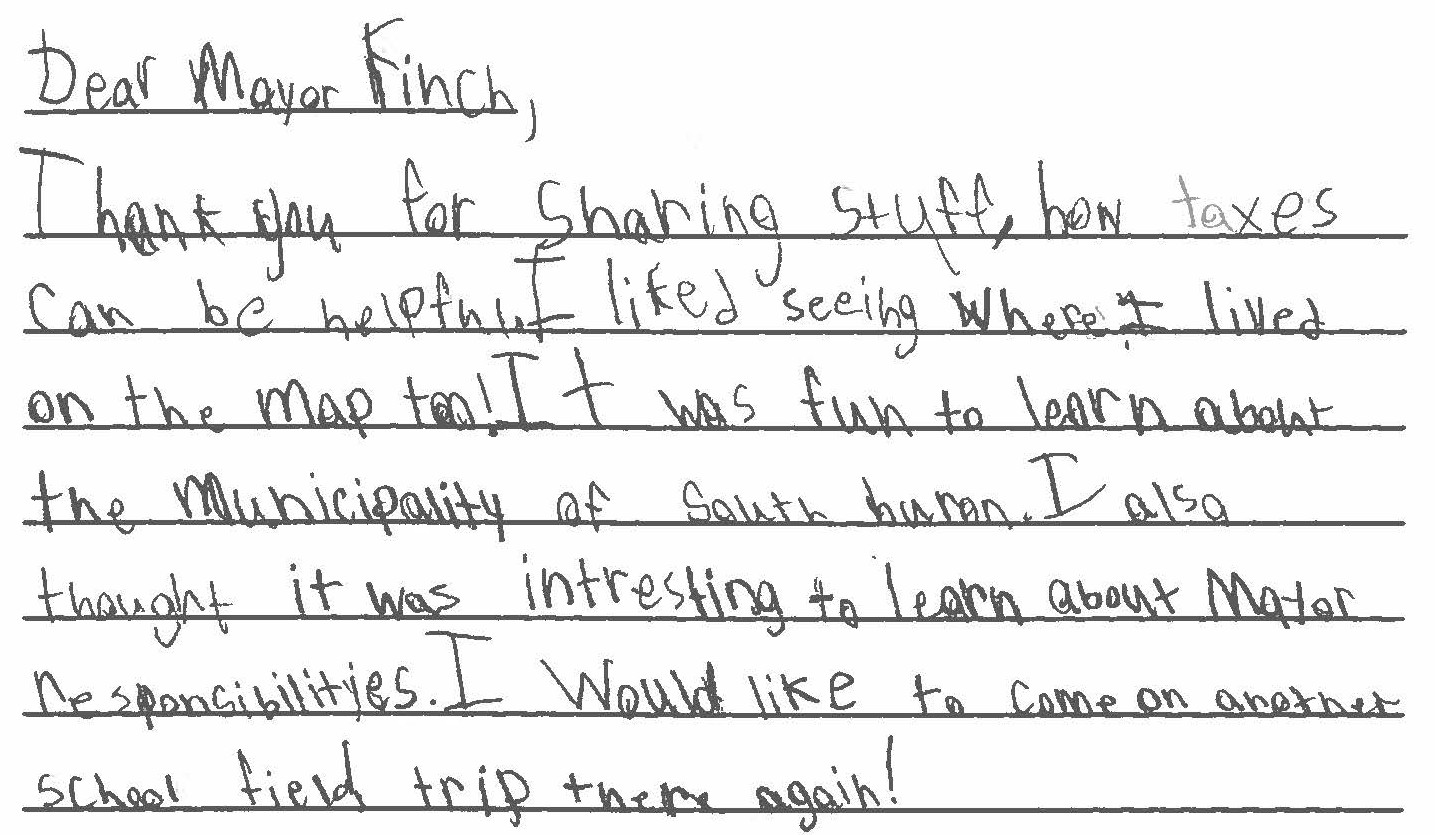 Dear Mayor Finch,
Thank you for sharing stuff, how taxes
can be helpful. I liked seeing where I lived
on the map too! It was fun to learn about
the Municipality of South huron. I also
thought it was intresting to learn about Mayor
responsibilityes. I Would like to come on another
school field trip there again!